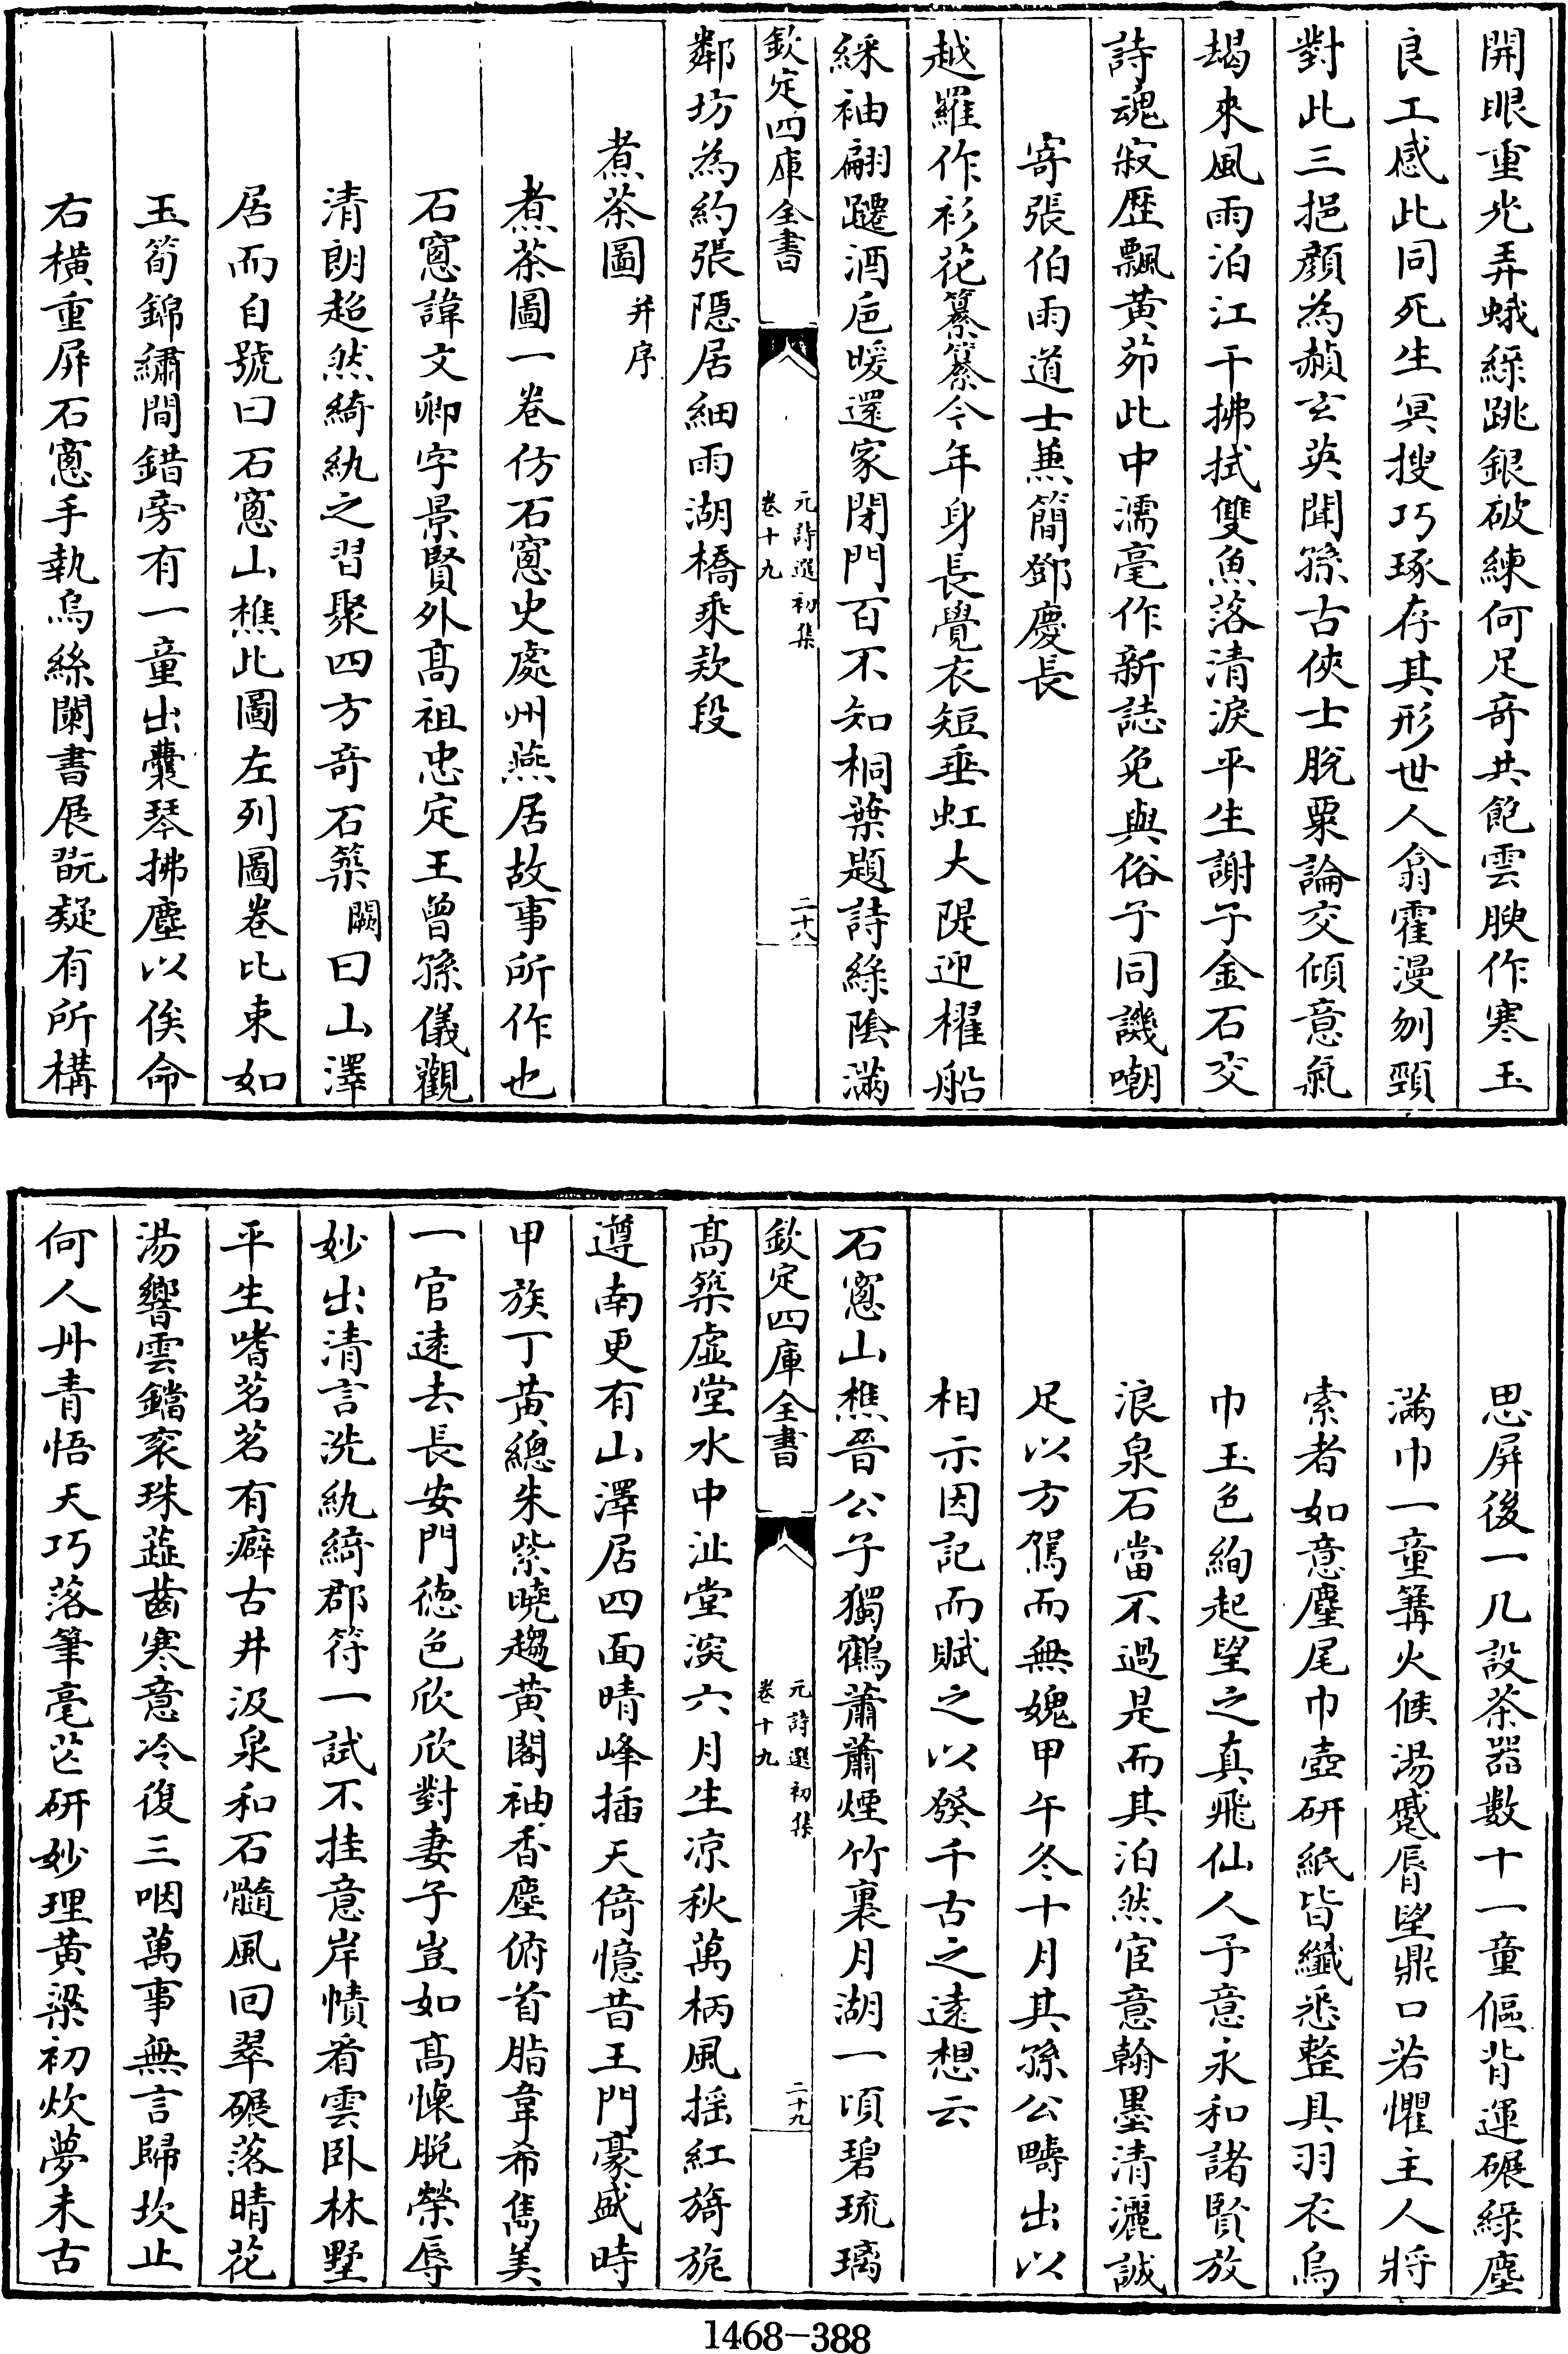 開眼重光弄蛾綠跳銀破練何足奇共飽雲腴作寒玉
良工感此同死生冥搜巧琢存其形世人翕霍漫刎頸
對此三挹顏為赬玄英聞孫古俠士脫粟論交傾意氣
朅來風雨泊江干拂拭雙魚落清淚平生謝子金石交
詩魂寂歷飄黃茆此中濡毫作新誌免與俗子同譏嘲
寄張伯雨道士兼簡鄧慶長
越羅作衫花纂纂今年身長覺衣短垂虹大隄迎櫂船
綵袖翩躚酒巵暖還家閉門百不知桐葉題詩綠陰滿
欽定四庫全書
元詩選初集
卷十九
二十八
鄰坊為約張隱居細雨湖橋乘款段
煮茶圖并序
煮茶圖一卷仿石窻史處州燕居故事所作也
石窻諱文卿字景賢外髙祖忠定王曾孫儀觀
清朗超然綺紈之習聚四方奇石築闕曰山澤
居而自號曰石窻山樵此圖左列圖卷比束如
玉筍錦繡間錯旁有一童出囊琴拂塵以俟命
右橫重屏石窻手執烏絲闌書展翫疑有所構
思屏後一几設茶器數十一童傴背運碾綠塵
滿巾一童篝火候湯蹙脣望鼎口若懼主人將
索者如意麈尾巾壺研紙皆纖悉整具羽衣烏
巾玉色絢起望之真飛仙人予意永和諸賢放
浪泉石當不過是而其泊然宦意翰墨清灑誠
足以方駕而無媿甲午冬十月其孫公疇出以
相示因記而賦之以發千古之遠想云
石窻山樵晉公子獨鶴蕭蕭煙竹裏月湖一頃碧琉璃
欽定四庫全書
元詩選初集
卷十九
二十九
髙築虛堂水中沚堂深六月生凉秋萬柄風搖紅旖旎
遵南更有山澤居四面晴峰插天倚憶昔王門豪盛時
甲族丁黃總朱紫曉趨黃閣袖香塵俯首脂韋希雋美
一官遠去長安門德色欣欣對妻子豈如髙懷脫榮辱
妙出清言洗紈綺郡符一試不挂意岸幘看雲卧林墅
平生嗜茗茗有癖古井汲泉和石髓風回翠碾落晴花
湯響雲鐺衮珠蘂齒寒意冷復三咽萬事無言歸坎止
何人丹青悟天巧落筆毫芒研妙理黃粱初炊夢未古
1468-388